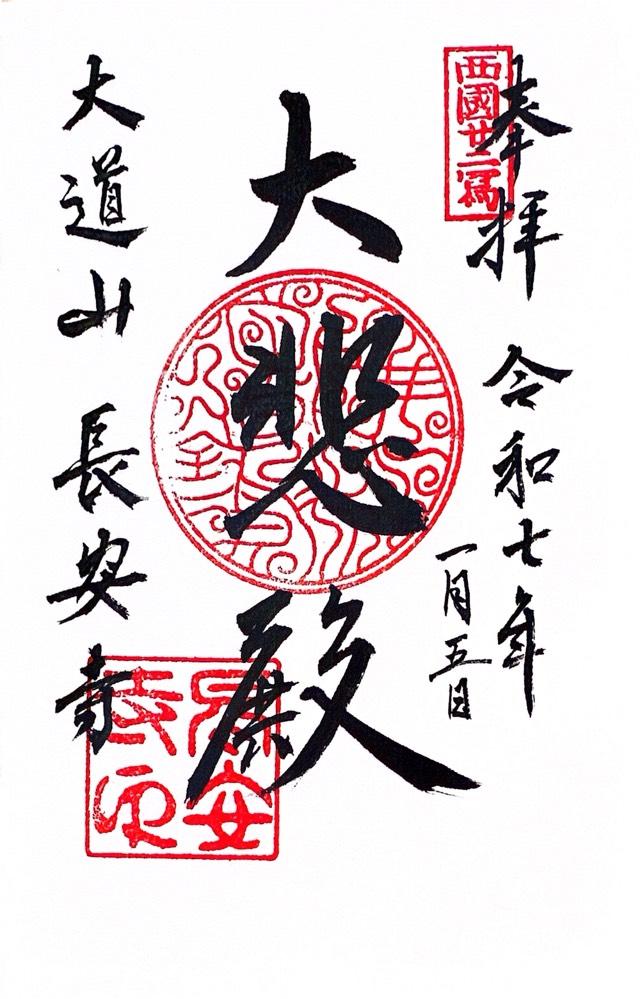 奉拝
西國廿二寫
令和七年
一月五日
大悲殿
大道山 長安寺